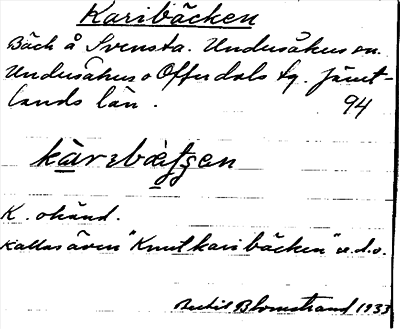 Karibäcken
Bäck å Svensta. Undersåkers sn.
Undersåkers o Offerdals tg. Jämt-
lands län. 94
kàrɩbæ̀ʈʂen
K. okänd.
Kallas även "Knutkaribäcken" v.d.o.
Bertil Blomstrand 1933